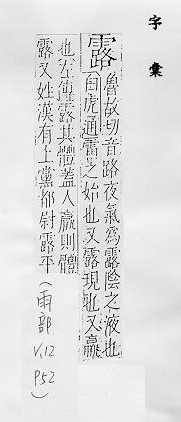 字彙
露 魯故切音路夜氣為露陰之液也
白虎通露之始也又露現也又羸
也左傳露其體蓋人羸則體
露又姓漢有上黨都尉露平（雨部
V.12
P52）